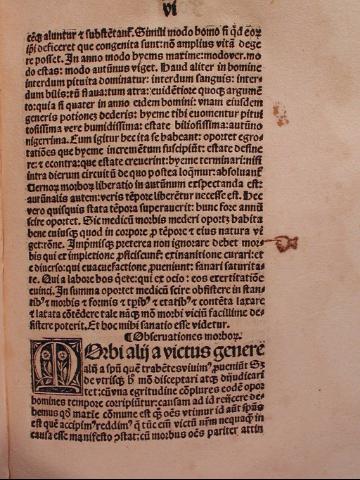 vi
a aluntur & substētant. Simili modo homo si qd eoꝝ
ibi deficeret que congenita sunt: nō amplius vitā dege
re posset. In anno modo hyems maxime: modo ver. mo
do estas: modo autūnus viget. Haud aliter in homine
interdum pituita dominatur: interdum sanguis: inter-
dum bilis: tū flaua: tum atra: euidētiore quoqꝫ argumē
to: qui a si quater in anno eidem homini: vnam eiusdem
generis potionē dederis: hyeme tibi euomitur pitui
tosissima vere humidissima: estate biliosissima: autūno
nigerrima. Cum igitur hec ita se habeant: oportet egro-
tatiōes que hyeme incrementum suscipiūt: estate desine
re: & econtra: que estate creuerint: hyeme terminari: nisi
intra dierum circuitū de quo postea loqmur: absoluant
Vernoꝝ morboꝝ liberatio in autūnum exspectanda est:
autūnalis autem: veris tēpore liberetur necesse est. De
vero quisquis stata tēpora superauerit: hunc fore annū
scire oportet. Sic medicū morbis mederi oportꝫ habita
bene eiusqꝫ quod in corpore ꝓ tēpore & eius natura vi
get: rōne. Impinisqꝫ preterea non ignorare debet mor-
bis qui ex impletione ꝓficiscunt exinanitione curari: et
e diuerso: qui euacuefactione ꝓueniunt: sanari saturita-
te. Qui a labore hos qete: qui ex ocio: eos exercitatiōe
euinci. In summa oportet medicū scire obsistere instan-
tibꝰ & morbis & formis & tpibꝰ & etatibꝰ & contēta laxare
& laxata cōtēdere tale naqꝫ mō morbi viciū facillime de-
sistere poterit. Et hoc mihi sanatio esse videtur.
¶Obseruationes morboꝝ.
Morbi alij a victus genere
alij a spū quē trahētes viuimꝰ ꝓueniūt Se
de vtrisqꝫ hꝰ mō disceptari atqꝫ diiudicari
tet: cū vna egritudine cōplures eodē
homines tempore corripiūtur: causam ad id reijcere de-
bemus qd maxie cōmune est qꝫ oēs vtimur id aūt spūs
est quē accipimꝰ reddimꝰ qꝫ tūc eīm victū nrm nequaqꝫ in
causa esse manifesto ꝯstat: cū morbus oēs pariter attin